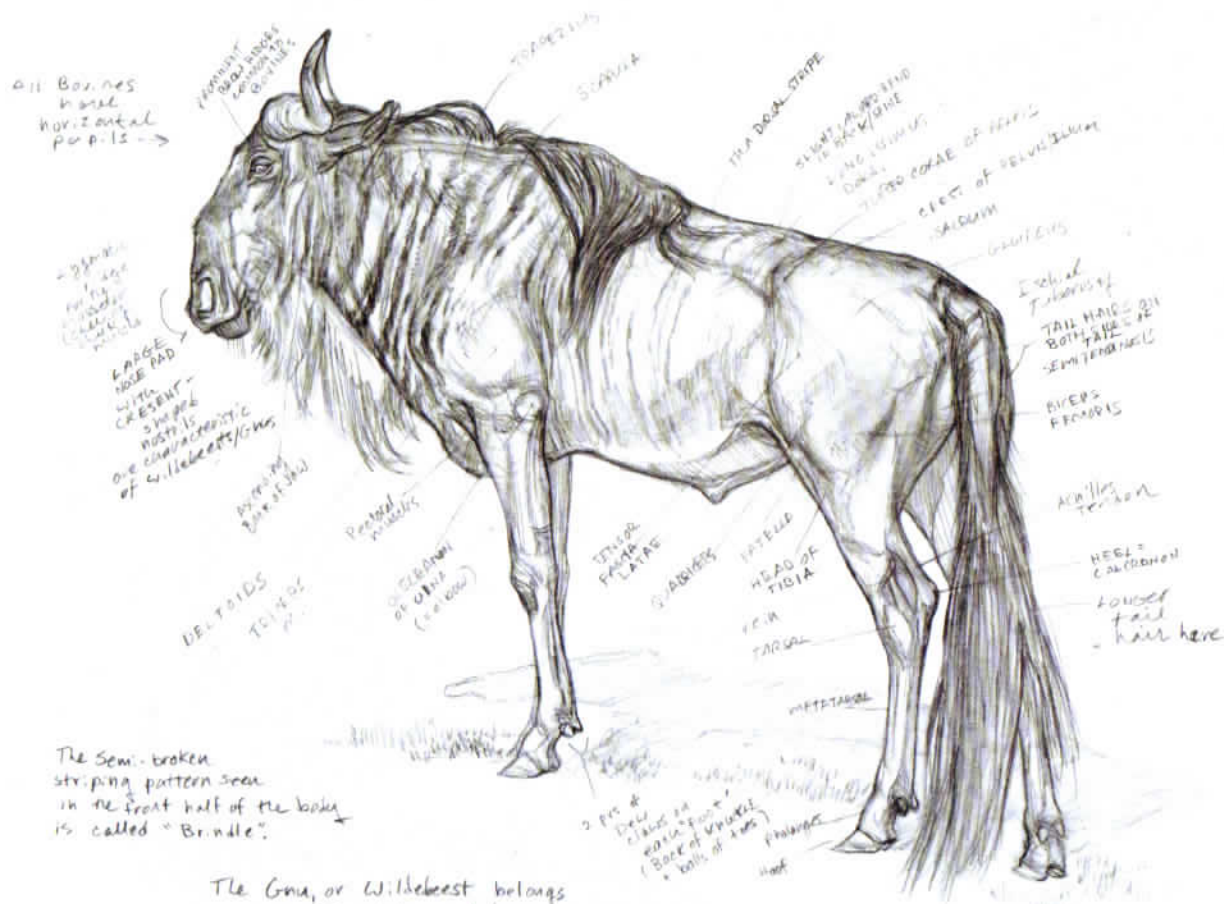 All Bovines
have
horizontal
pupils →
PROMINENT
BROW RIDGES
COMMON TO
BOVINES
TRAPEZIUS
SCAPULA
THA DORSAL STRIPE
SLIGHT UPWARD BEND
IN BACK/SPINE
LONGISSIMUS
DORSI
CREST OF PELVIS/ILIUM
SACRUM
GLUTEUS
Ischial
Tuberosity
TAIL HAIRS ON
BOTH SIDES OF
TAIL
BICEPS
FEMORIS
ACHILLES
Tendon
HEEL =
LONGER
tail
hair here
LARGE
NOSE PAD
WITH
CRESENT-
shaped
nostrils
one characteristic
of Wildebeests/Gnus
ASCENDING
BACK OF JAW
Pectoral
muscles
DELTOIDS
OF ULNA
(elbow)
TENSOR
FASIA
LATAE
QUADRICEPS
PATELLA
HEAD OF
TIBIA
vein
TARSAL
METATARSAL
2 prs of
Dew
claws on
each "foot"
(Back of knuckle
balls of toes)
Phalanges
Hoof
The Semi-broken
striping pattern seen
in the front half of the body
is called "Brindle".
The Gnu, or Wildebeest belongs